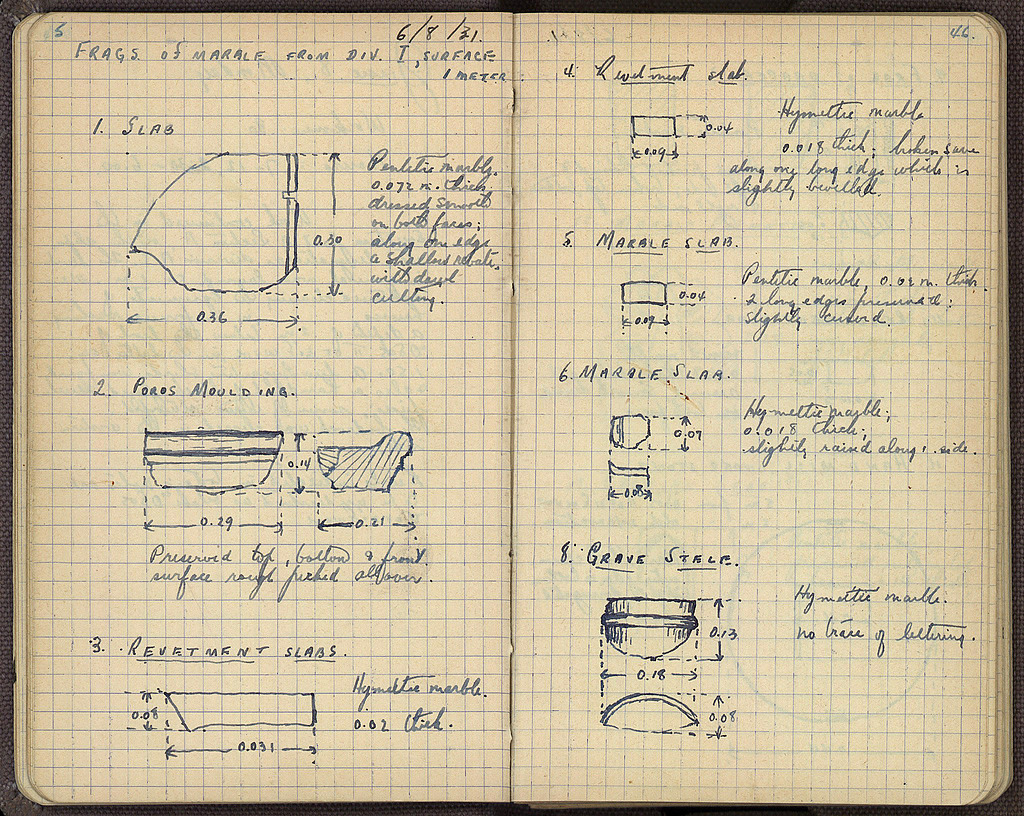 5
6/8/31.
FRAGS. of MARBLE FROM DIV. I, SURFACE
1 METER
1. SLAB
Pentelic marble.
0.072 m. thick.
dressed smooth
on both faces;
along one edge
a shallow rebate,
with dowel
cutting.
0.30
0.36
2. POROS MOULDING.
0.14
0.29
0.21
Preserved top, bottom & front.
surface rough picked all over.
3. REVETMENT SLABS.
Hymettic marble.
0.02 thick.
0.08
0.031
46.
4. Revetment slab.
Hymettic marble
0.018 thick; broken save
along one long edge which is
slightly bevelled.
0.04
0.09
5. MARBLE SLAB.
Pentelic marble, 0.02 m. thick.
2 long edges preserved;
slightly curved.
0.04
0.09
6. MARBLE SLAB.
Hymettic marble;
0.018 thick;
slightly raised along 1 side.
0.07
0.08
8. GRAVE STELE.
Hymettic marble.
no trace of lettering.
0.13
0.18
0.08